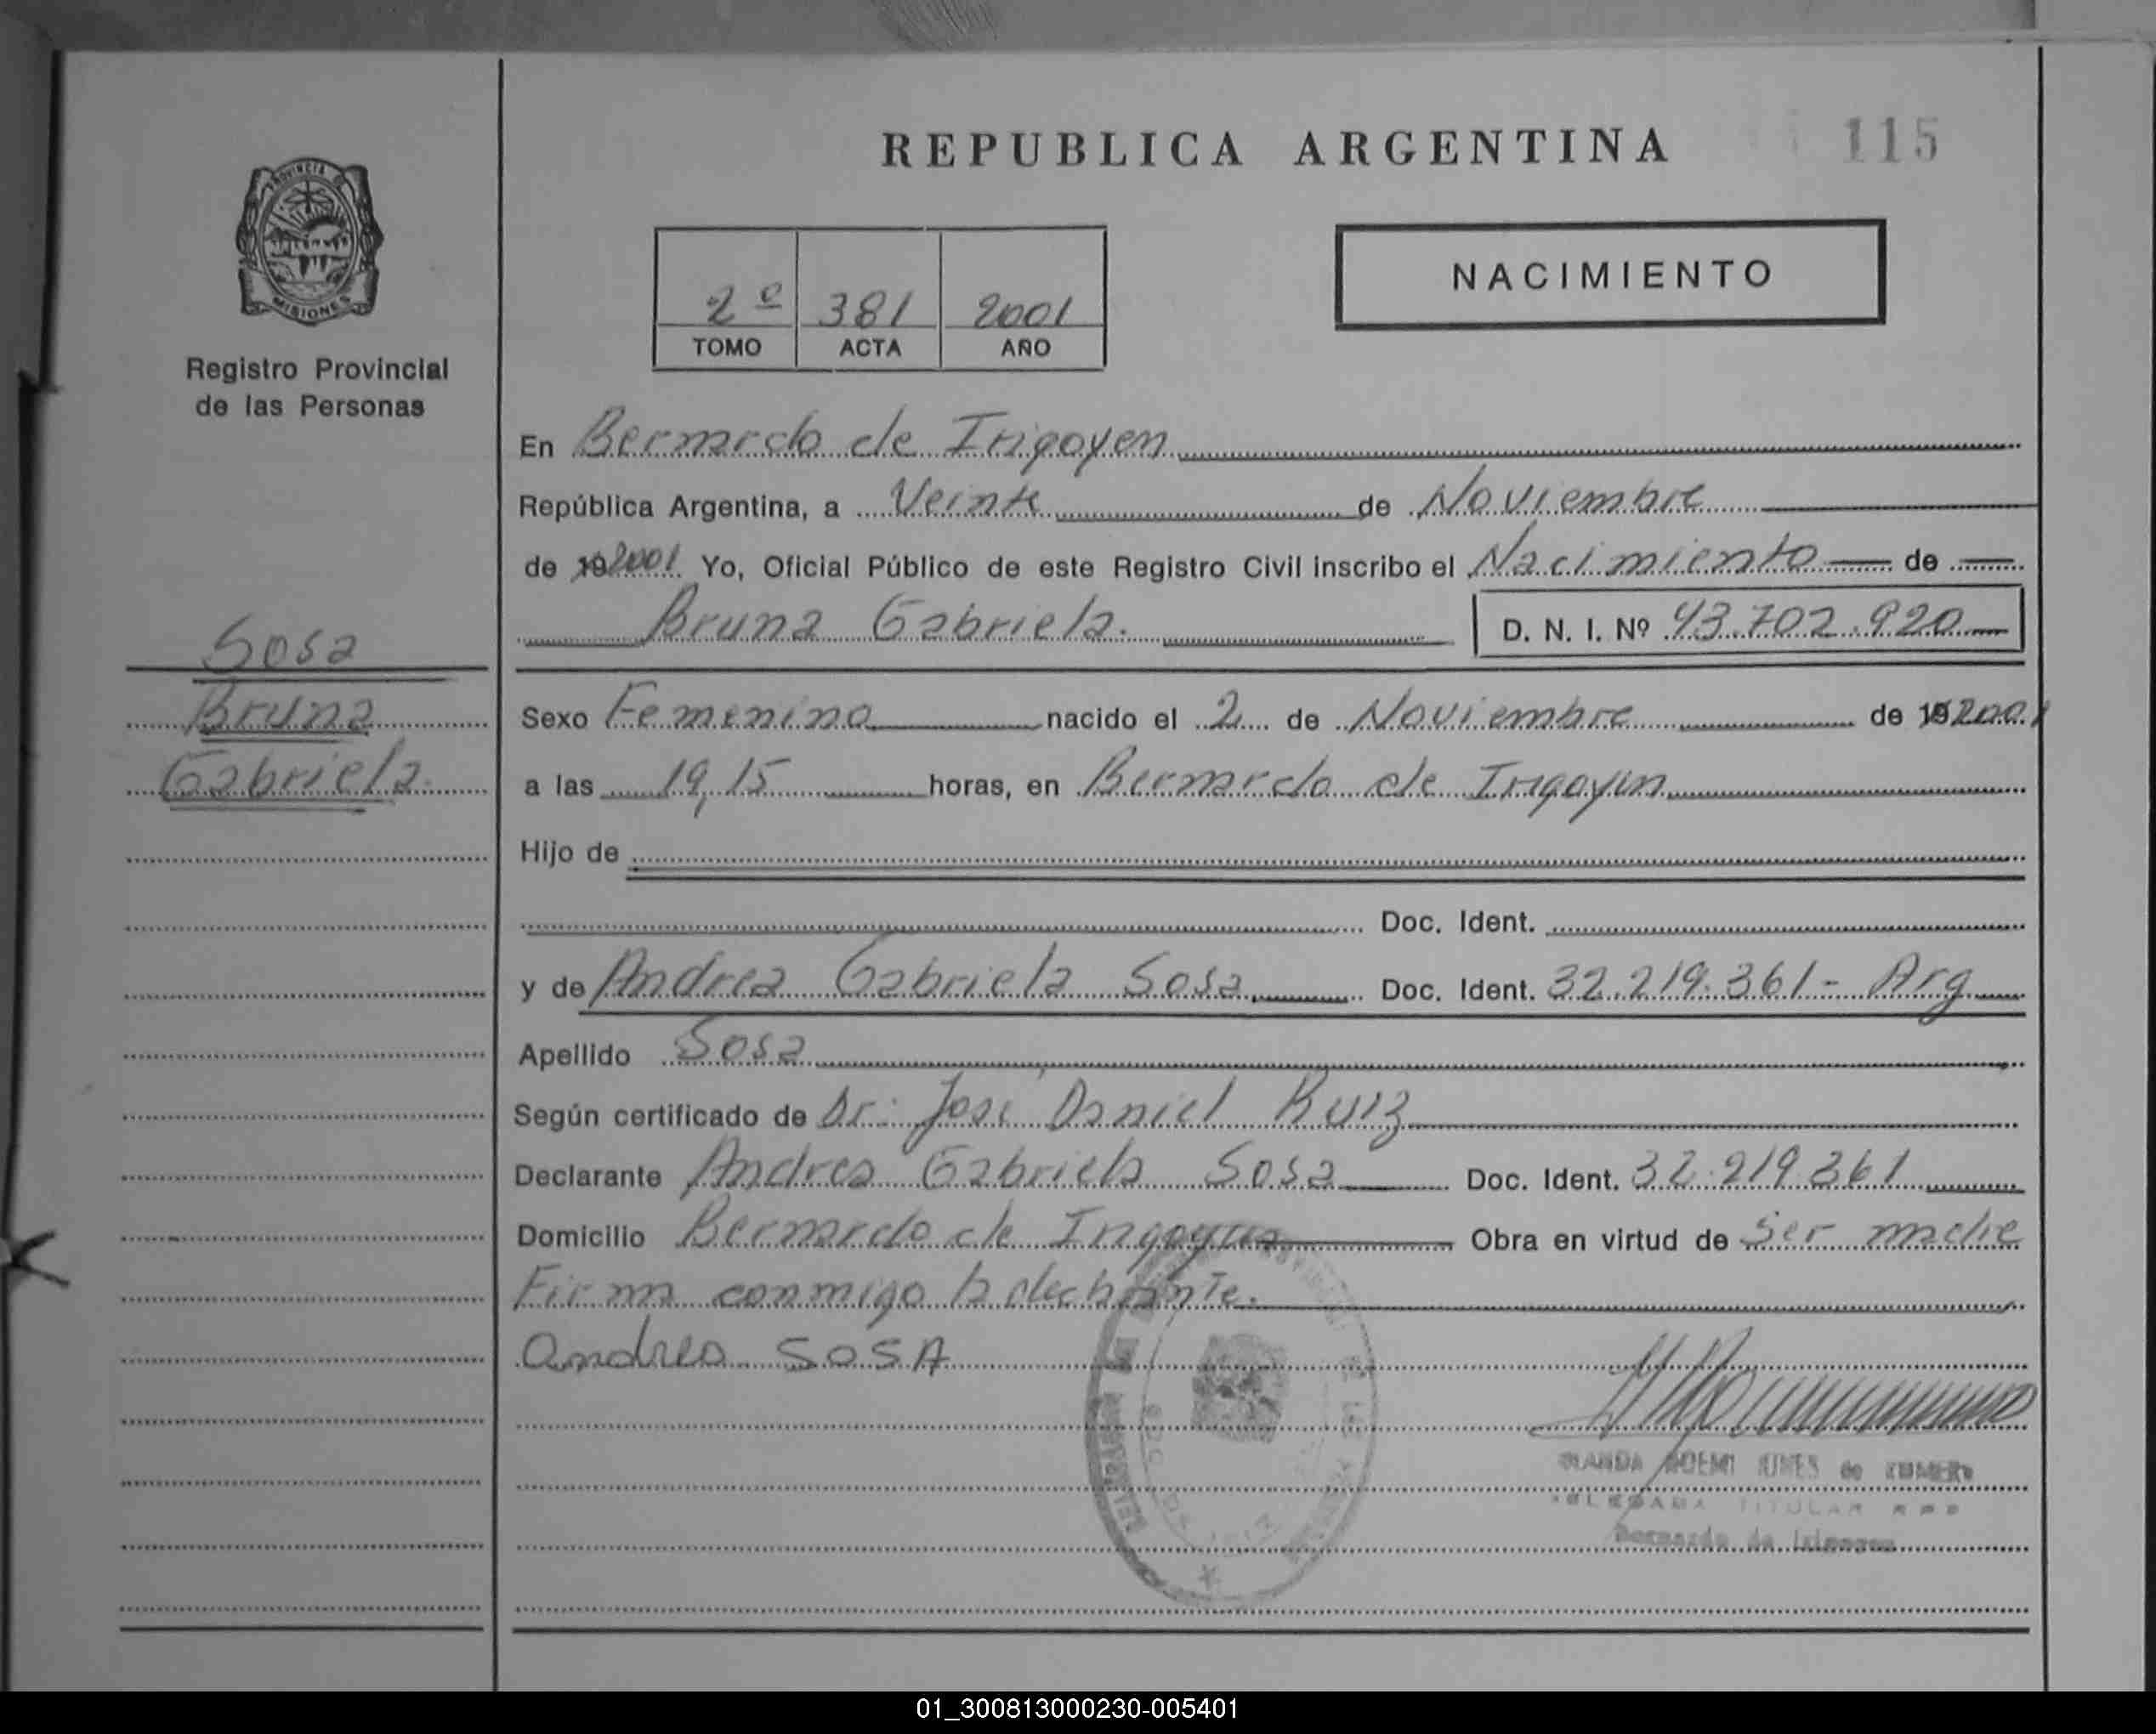 REPUBLICA ARGENTINA
115
PROVINCIA DE
MISIONES
Registro Provincial
de las Personas
2º 381 2001
TOMO ACTA AÑO
NACIMIENTO
En Bernardo de Irigoyen
República Argentina, a Veinte de Noviembre
de 19 2001 Yo, Oficial Público de este Registro Civil inscribo el Nacimiento de
Bruna Gabriela. D. N. I. Nº 43.702.920
Sosa
Bruna
Gabriela.
Sexo Femenino nacido el 2 de Noviembre de 19 2001
a las 19,15 horas, en Bernardo de Irigoyen
Hijo de
Doc. Ident.
y de Andrea Gabriela Sosa Doc. Ident. 32.219.361 - Arg
Apellido Sosa
Según certificado de Dr: José Daniel Ruiz
Declarante Andrea Gabriela Sosa Doc. Ident. 32.219.361
Domicilio Bernardo de Irigoyen Obra en virtud de Ser madre
Firma conmigo la declarante.
Andrea SOSA
NOEMI de
DELEGADA TITULAR
Bernardo de Irigoyen
01_300813000230-005401